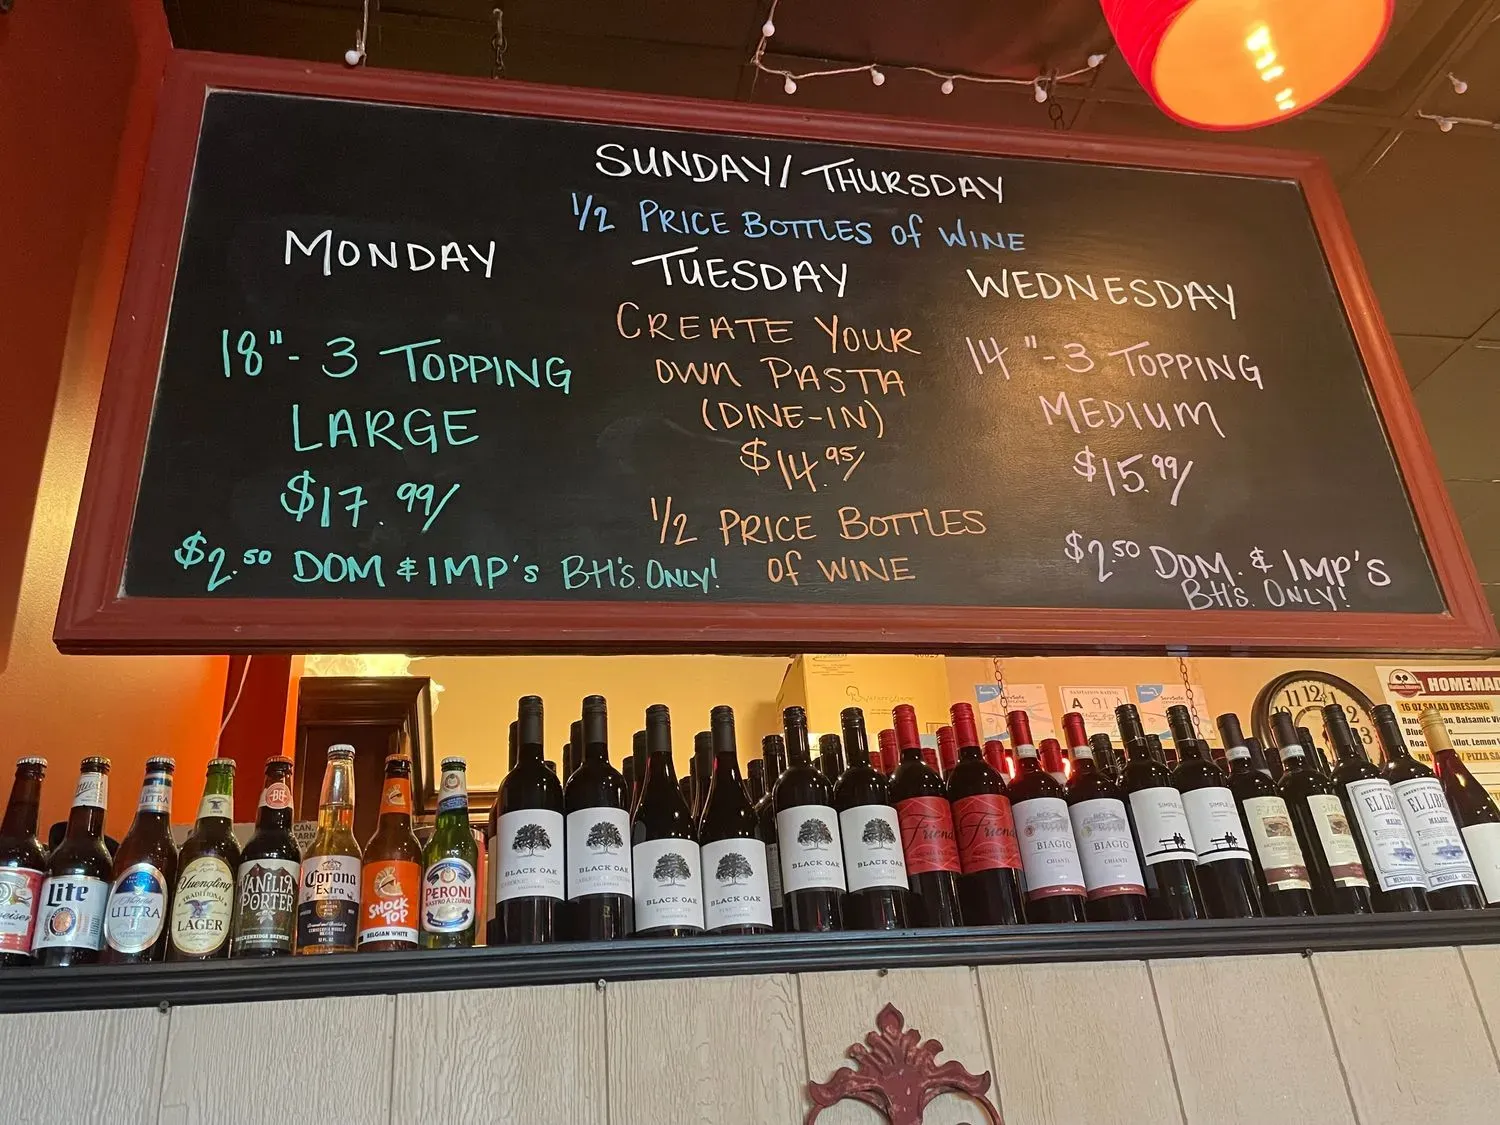 SUNDAY/THURSDAY
1/2 PRICE BOTTLES of WINE
MONDAY
18"- 3 TOPPING
LARGE
$17.99/
$2.50 DOM & IMP's BH's. ONLY!
TUESDAY
CREATE YOUR
OWN PASTA
(DINE-IN)
$14.95/
1/2 PRICE BOTTLES
of WINE
WEDNESDAY
14"-3 TOPPING
MEDIUM
$15.99/
$2.50 DOM. & IMP's
BH's. ONLY!
HOMEMAD
16 OZ SALAD DRESSING
Balsamic
Lemon
PIZZA
SANITATION RATING
A 91
ServSafe
ServSafe
11 12 1
2
3
Lite
ULTRA
ULTRA
Yuengling
TRADITIONAL
LAGER
VANILLA
PORTER
Corona
Extra
SHOCK
TOP
BELGIAN WHITE
PERONI
NASTRO AZZURRO
BLACK OAK
BLACK OAK
BLACK OAK
BLACK OAK
BLACK OAK
BLACK OAK
BIAGIO
CHIANTI
BIAGIO
CHIANTI
SIMPLE
SIMPLE
EL LIBRE
MALBEC
EL LIBRE
MALBEC